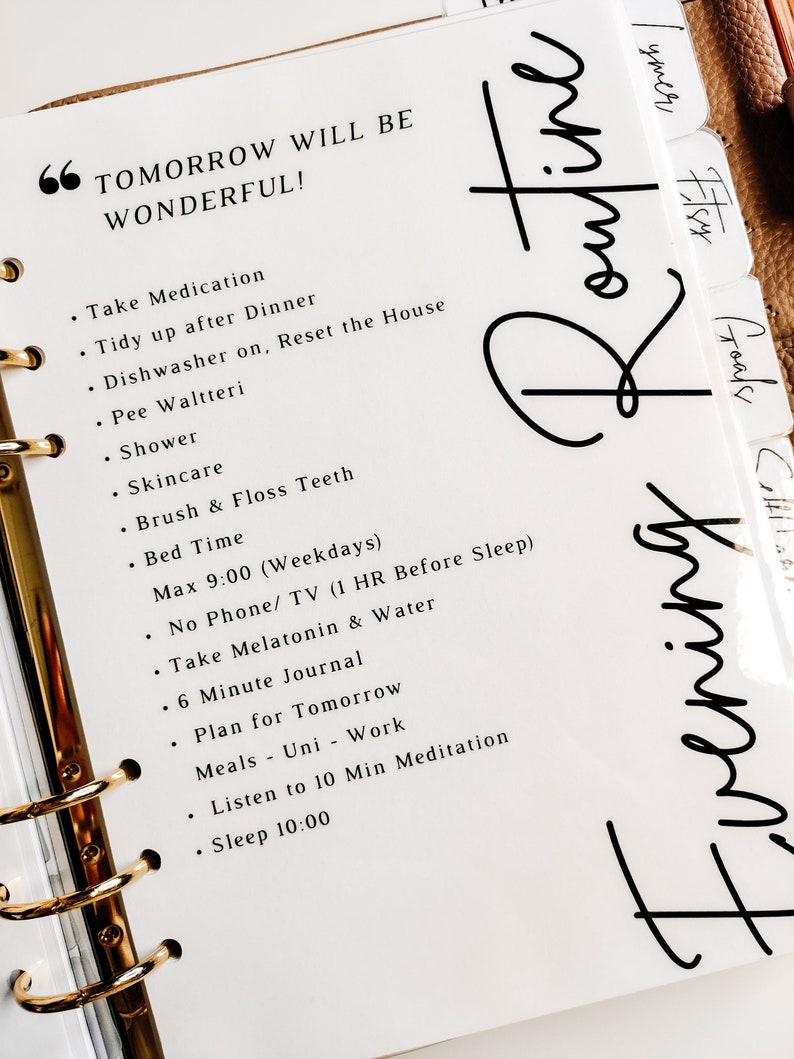 “ TOMORROW WILL BE
WONDERFUL!
• Take Medication
• Tidy up after Dinner
• Dishwasher on, Reset the House
• Pee Waltteri
• Shower
• Skincare
• Brush & Floss Teeth
• Bed Time
Max 9:00 (Weekdays)
• No Phone/ TV (1 HR Before Sleep)
• Take Melatonin & Water
• 6 Minute Journal
• Plan for Tomorrow
Meals - Uni - Work
• Listen to 10 Min Meditation
• Sleep 10:00
Evening Routine
Tymer
Etsy
Goals